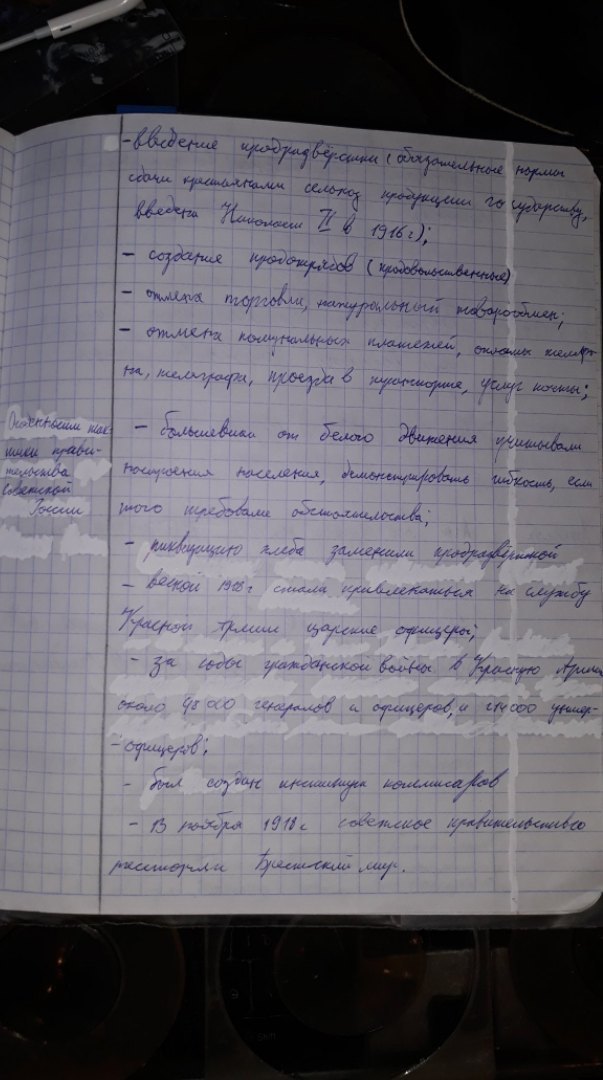 - введение продразвёрстки (обязательные нормы
сдачи крестьянами сельхоз продукции государству,
введена Николаем II в 1916 г);
- создание продотрядов (продовольственные)
- отмена торговли, натуральный товарообмен;
- отмена комунальных платежей, оплаты телефо-
на, телеграфа, проезда в транспорте, услуг почты;
Особенности так-
тики прави-
тельства
Советской
России
- большевики от белого движения учитывали
настроения населения, демонстрировать гибкость, если
того требовали обстоятельства;
- реквизицию хлеба заменили продразвёрсткой
- весной 1918 г стали привлекаться на службу
Красной Армии царские офицеры;
- за годы гражданской войны в Красную Армию
около 48 000 генералов и офицеров, и 214 000 унтер-
-офицеров;
- был создан институт комиссаров
- 13 ноября 1918 г советское правительство
расторгли Брестский мир.